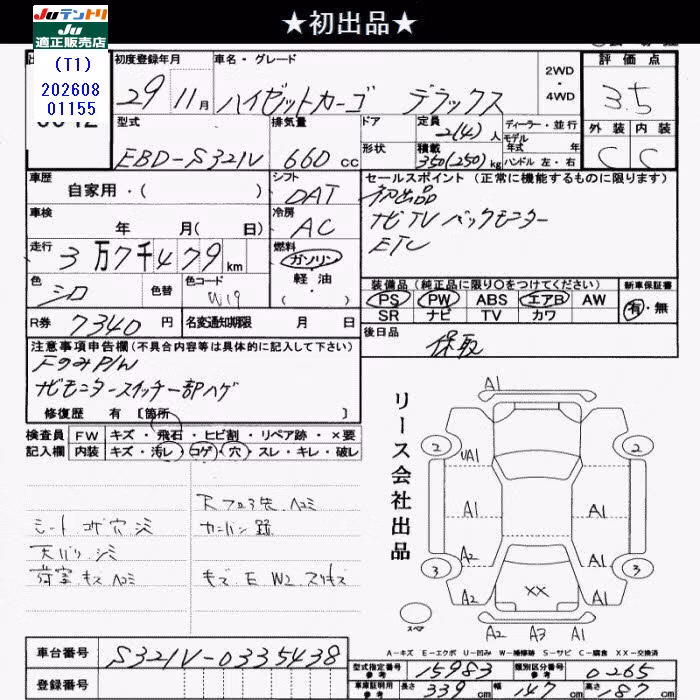 Juテントリ
Ju
適正販売店
★初出品★
(T1)
202608
01155
初度登録年月 車名・グレード 2WD 4WD 評価点
29 11月 ハイゼットカーゴ デラックス 3.5
型式 排気量 ドア 定員 2(4)人 ディーラー・並行 外装 内装
EBD-S321V 660cc 形状 積載 350(250)kg モデル年式 年 ハンドル 左・右 C C
車歴 自家用・( ) シフト DAT セールスポイント (正常に機能するものに限ります)
初出品
車検 年 月(日) 冷房 AC ナビTVバックモニター
ETC
走行 3万7千479km 燃料 ガソリン 軽油 ( )
色 シロ 色替 色コード W19 装備品 (純正品に限り○をつけてください) 新車保証書
PS PW ABS エアB AW 有・無
SR ナビ TV カワ
R券 7340円 名変通知期限 月 日 後日品 保取
注意事項申告欄 (不具合内容等は具体的に記入して下さい)
FのみP/W
ナビモニタースイッチ一部ハゲ
修復歴 有 [箇所 ]
検査員 FW キズ・飛石・ヒビ割・リペア跡・×要
記入欄 内装 キズ・汚レ・コゲ・穴・スレ・キレ・破レ
シートコゲ穴シミ カンバン跡
天バリ シミ
荷室キズヘコミ キズ E W2 スリキズ
リース会社出品
A1
2 2
UA1
A1 A1 A1
A2 A1
3 3
A2 XX A1
スペア
A2 A3 A1
A-キズ E-エクボ U-凹み W-補修跡 S-サビ C-腐食 XX-交換済
車台番号 S321V-0335438 型式指定番号 参考 15983 類別区分番号 参考 0265
登録番号 車庫証明用 参考 長さ 339cm 幅 147cm 高さ 187cm